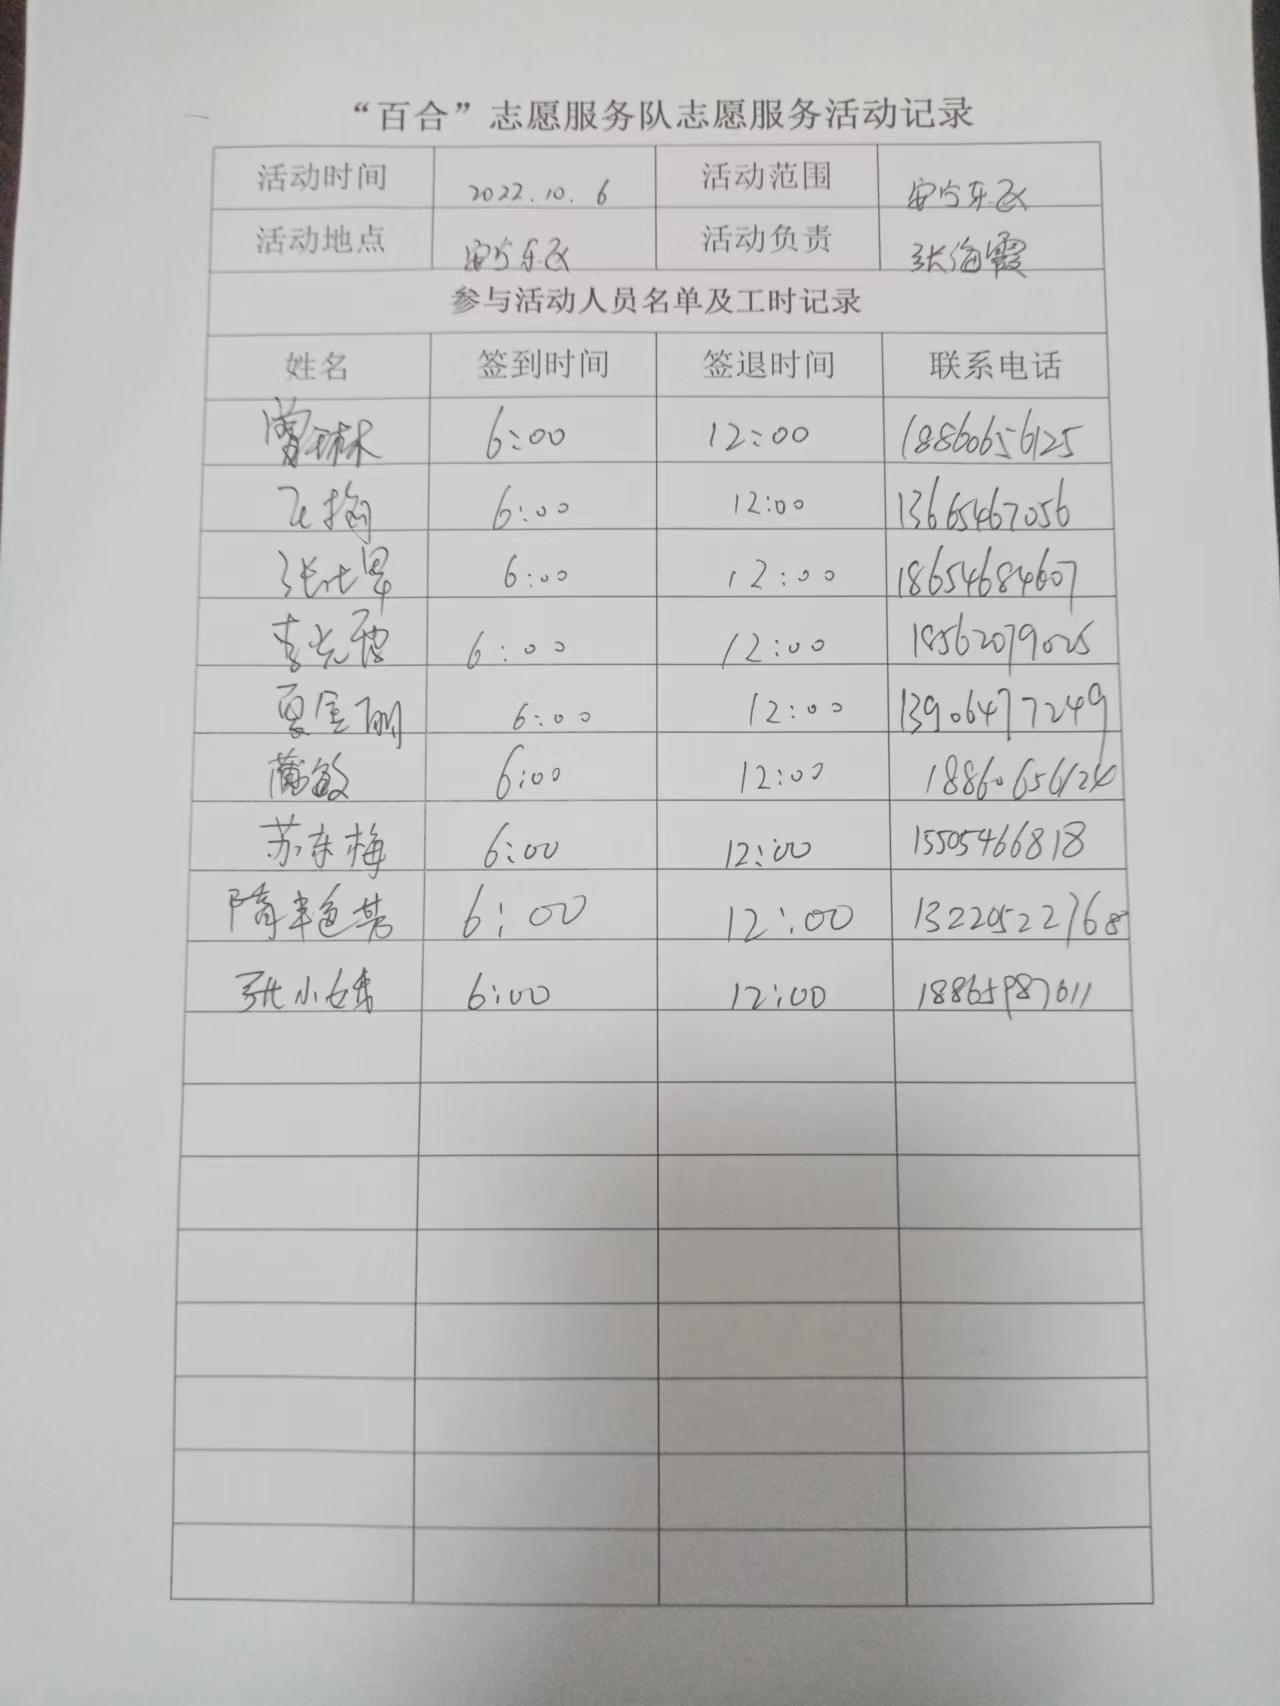 “百合”志愿服务队志愿服务活动记录
活动时间 2022.10.6 活动范围 安宁东区
活动地点 安宁东区 活动负责 张海霞
参与活动人员名单及工时记录
姓名 签到时间 签退时间 联系电话
曾琳 6:00 12:00 18860656125
6:00 12:00 13665467056
6:00 12:00 18654684607
李光 6:00 12:00 18562079025
夏金丽 6:00 12:00 13906477249
蒲敏 6:00 12:00 18860656124
苏东梅 6:00 12:00 15505466818
隋 6:00 12:00 13220522768
张小 6:00 12:00 18865987011